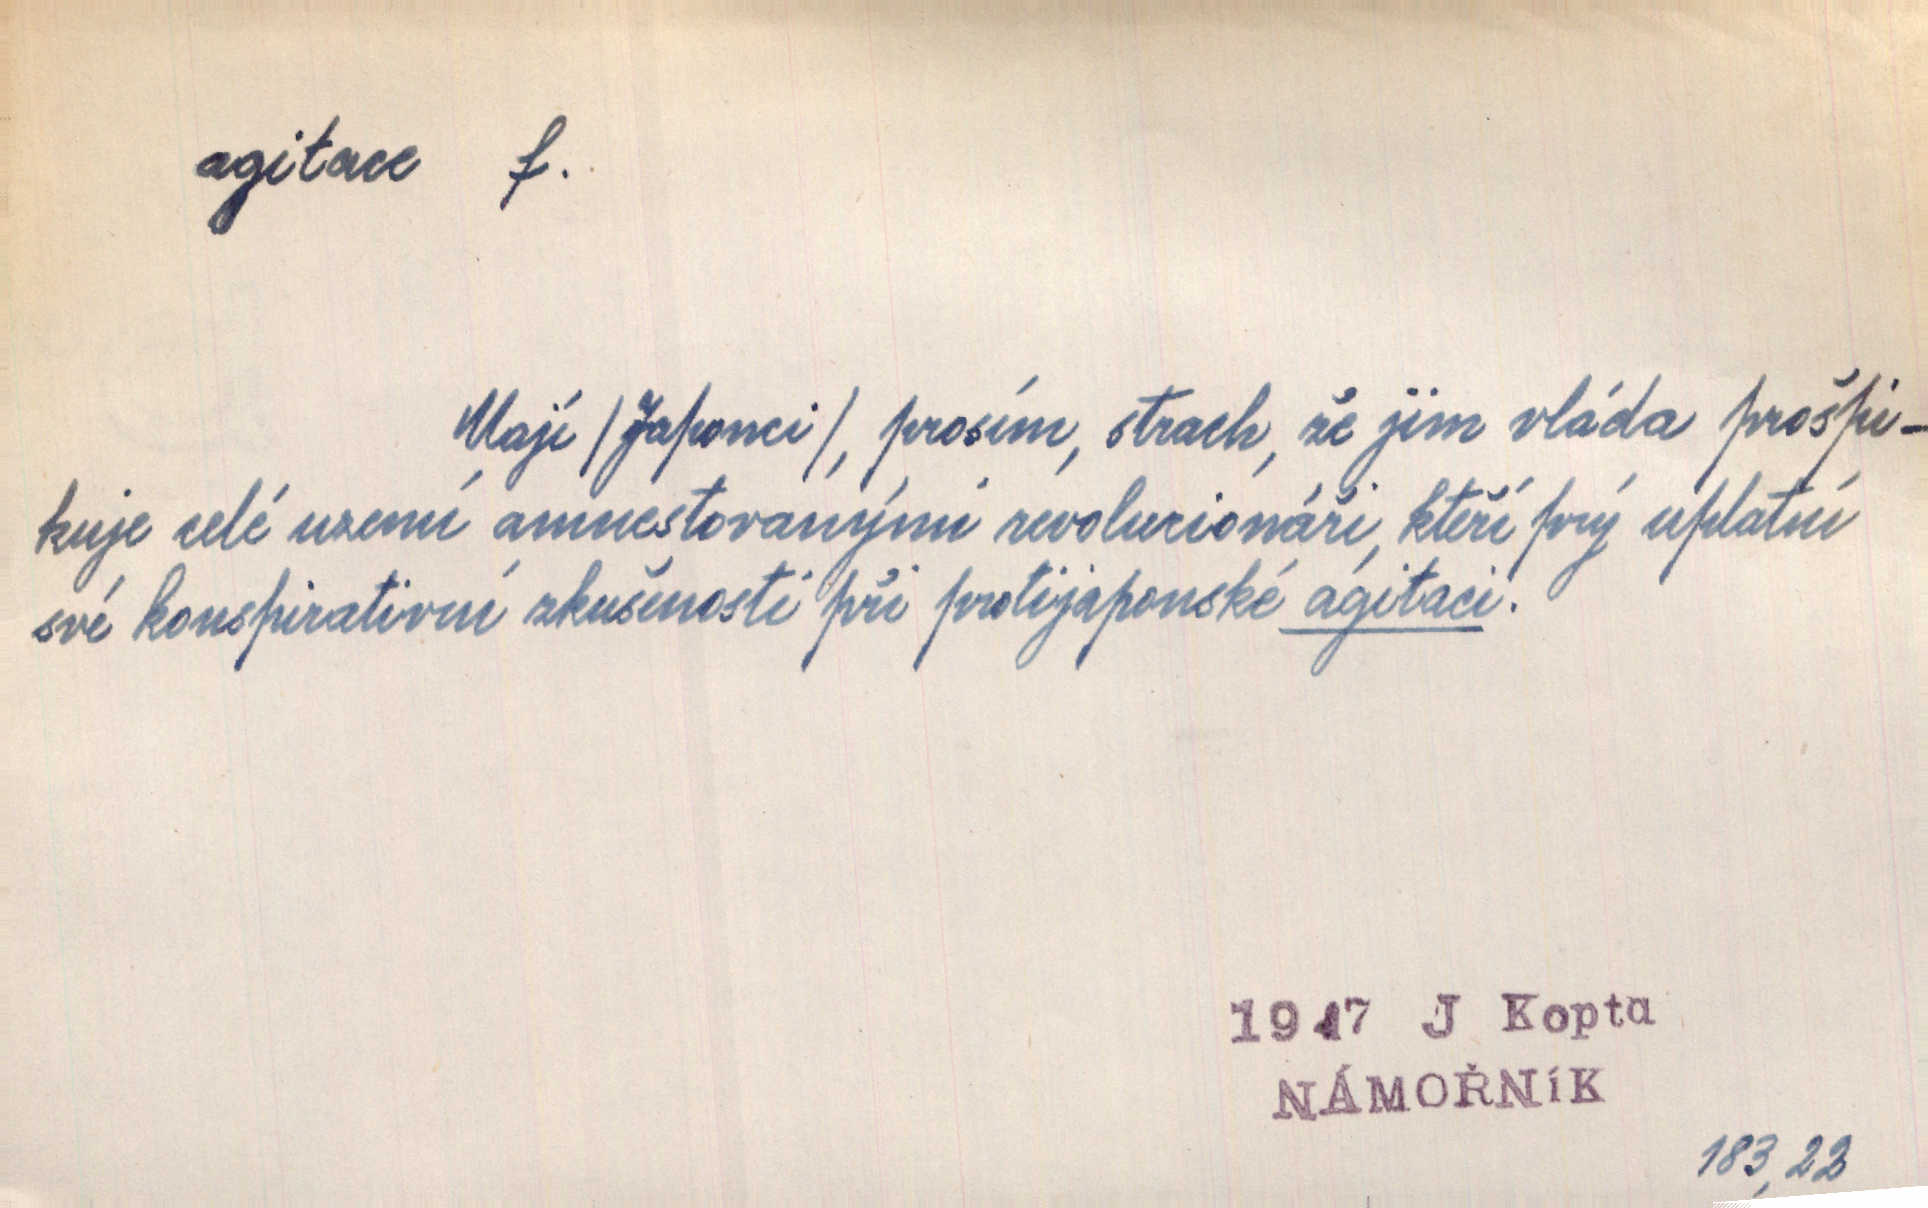 agitace f.
Mají /Japonci/, prosím, strach, že jim vláda prošpi-
kuje celé uzemí amnestovanými revolucionáři, kteří prý uplatní
své konspirativní zkušenosti při protijaponské agitaci.
1947 J Kopta
NÁMOŘNíK
183, 22